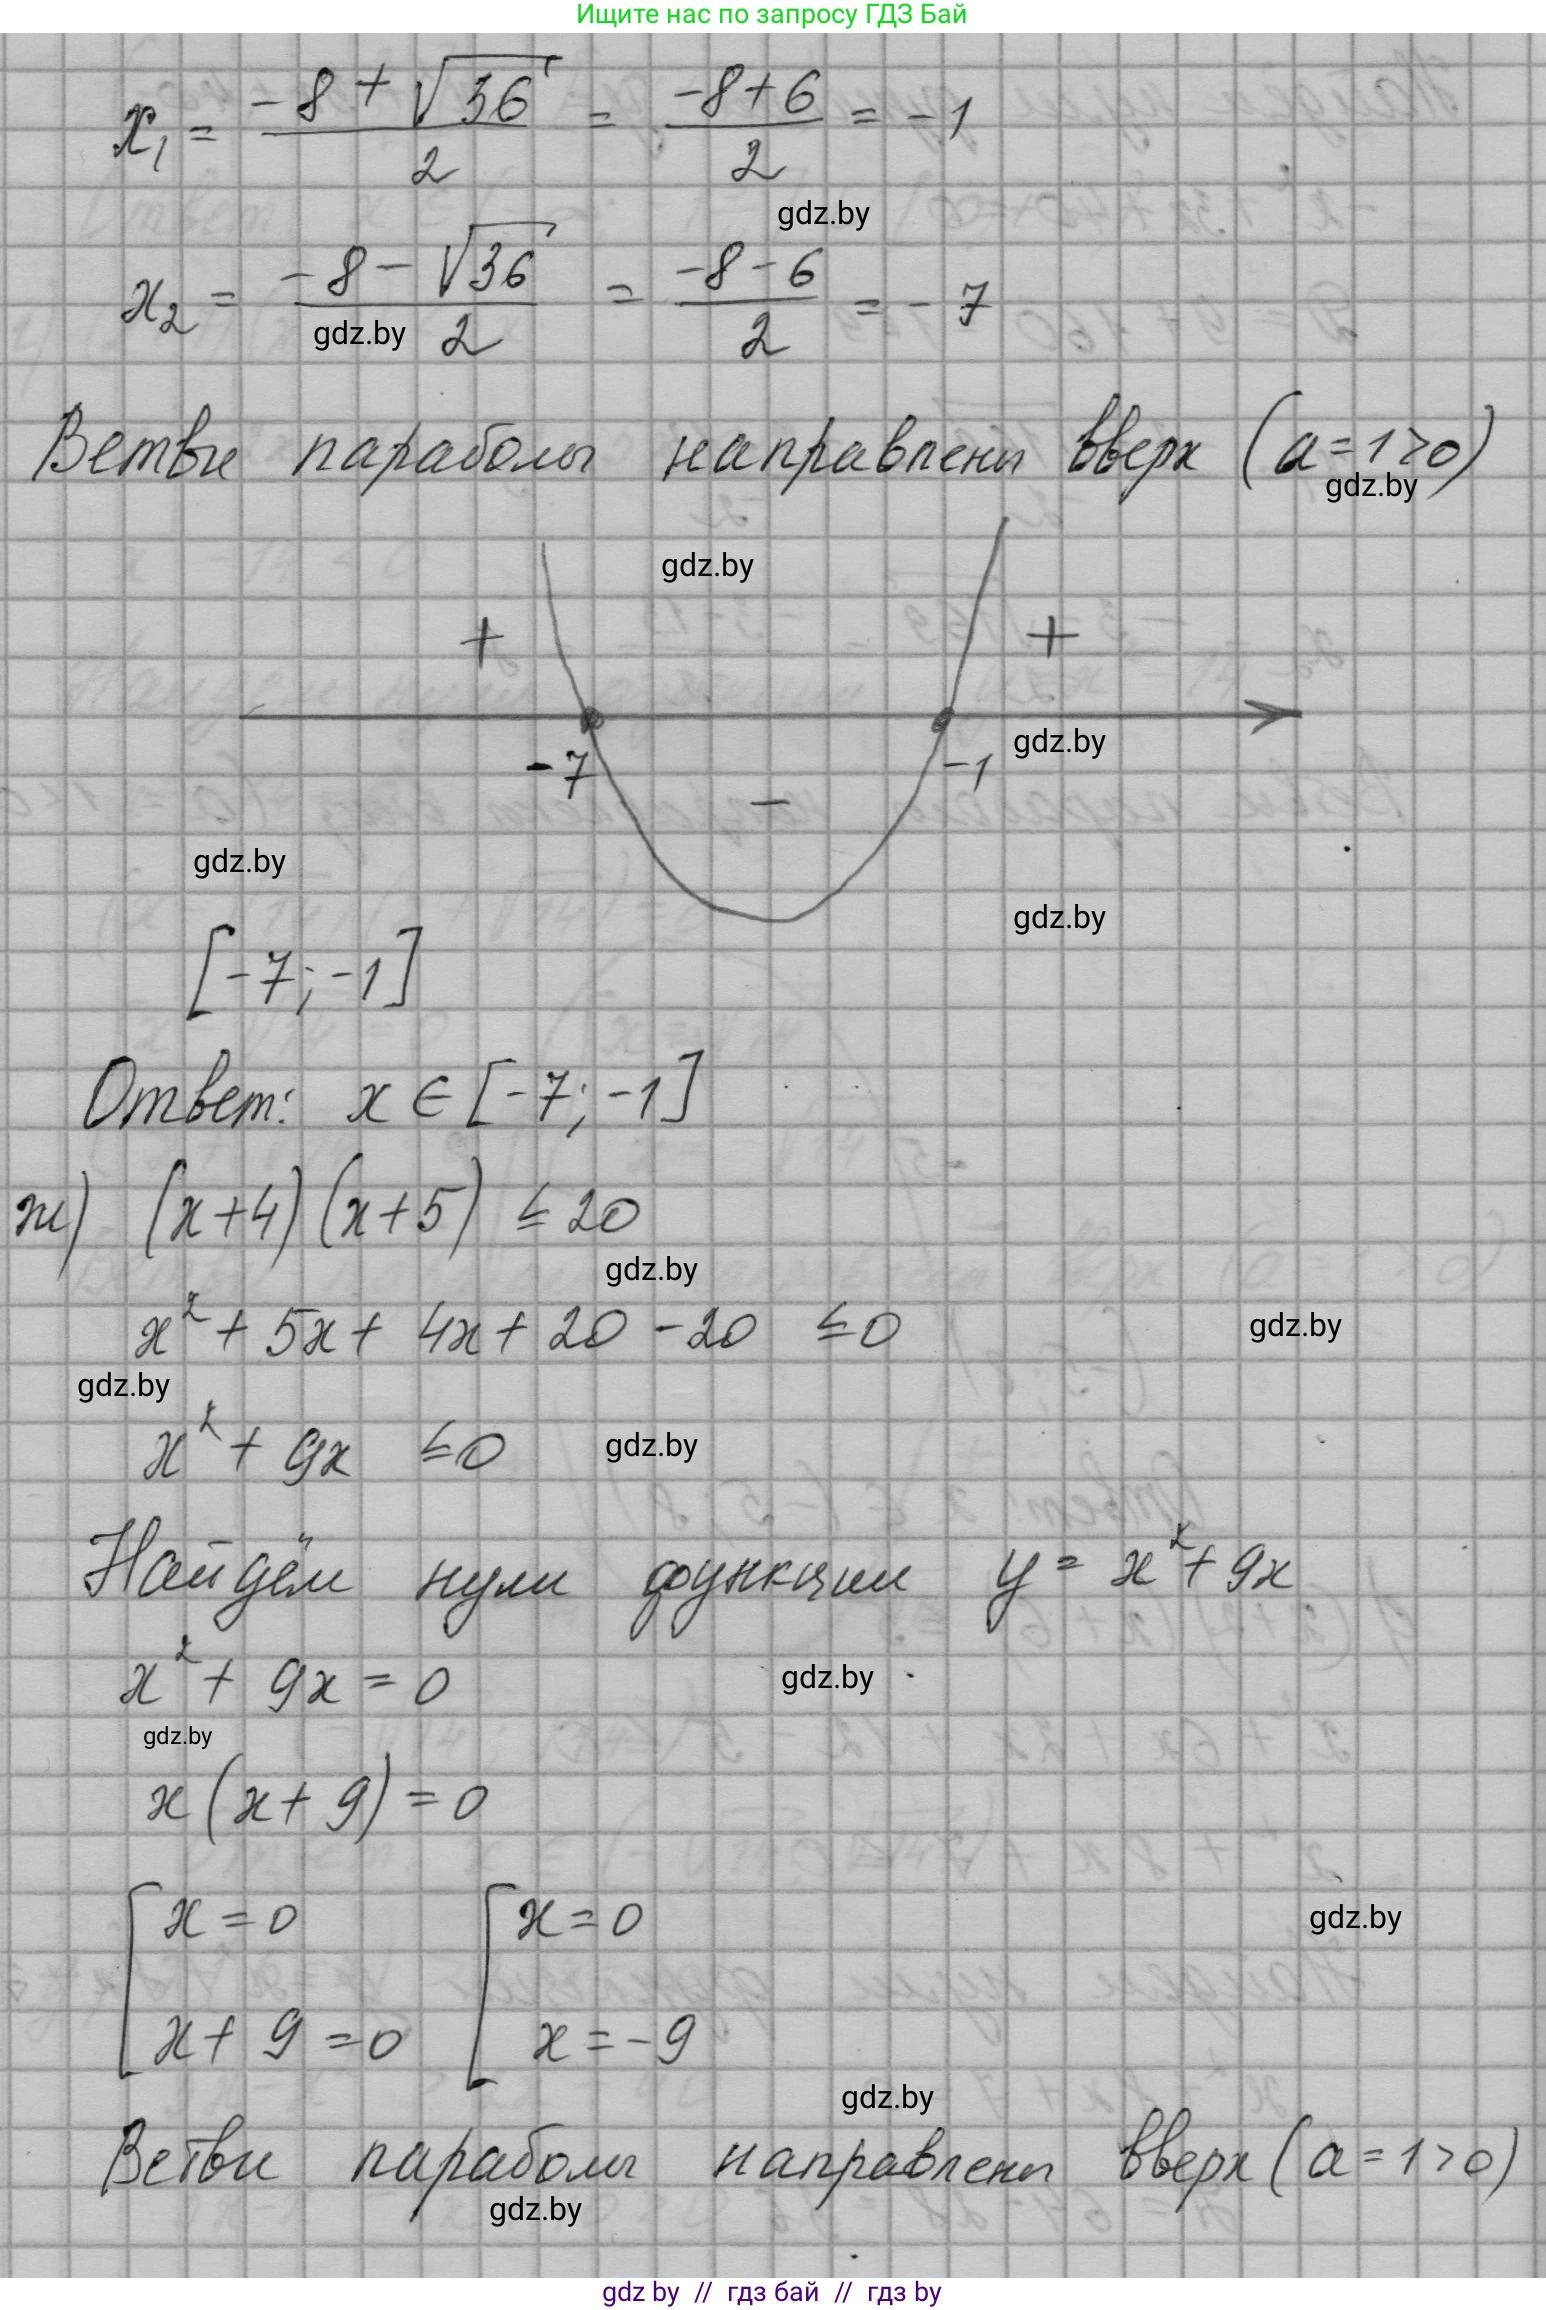 Ищите нас по запросу ГДЗ Бай
x₁ = (-8 + √36)/2 = (-8+6)/2 = -1
gdz.by
x₂ = (-8 - √36)/2 = (-8-6)/2 = -7
gdz.by
Ветви параболы направлены вверх (a=1>0)
gdz.by
gdz.by
+ +
gdz.by
-7 -1
-
gdz.by
gdz.by
[-7; -1]
Ответ: x ∈ [-7; -1]
ж) (x+4)(x+5) ≤ 20
gdz.by
x² + 5x + 4x + 20 - 20 ≤ 0
gdz.by
gdz.by
x² + 9x ≤ 0
gdz.by
Найдём нули функции y = x² + 9x
x² + 9x = 0
gdz.by
gdz.by
x(x+9) = 0
[x = 0 [x = 0
gdz.by
x + 9 = 0 x = -9
gdz.by
Ветви параболы направлены вверх (a=1>0)
gdz.by
gdz by // гдз бай // гдз by